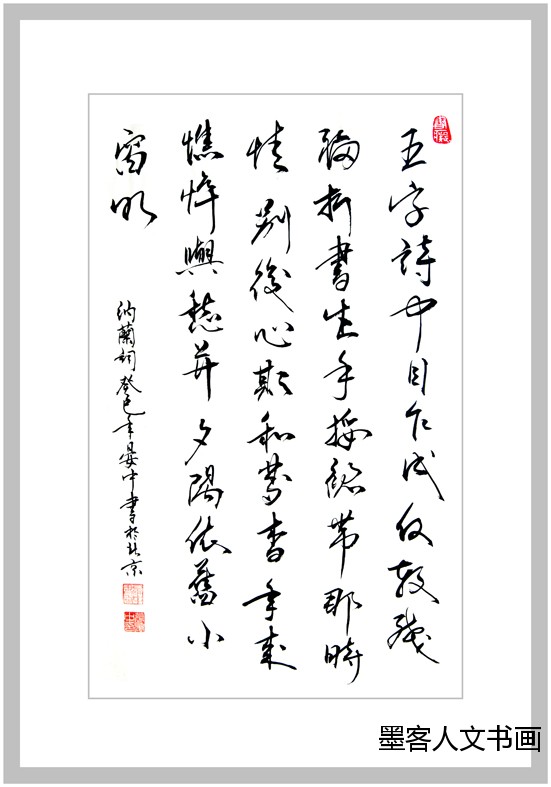 五字詩中目乍成仅教殘
福折書生手挼裙帶那時
情別後心期和夢杳年來
憔悴與愁并夕陽依舊小
窗明
納蘭詞癸巳年晏中書於北京
墨客人文书画